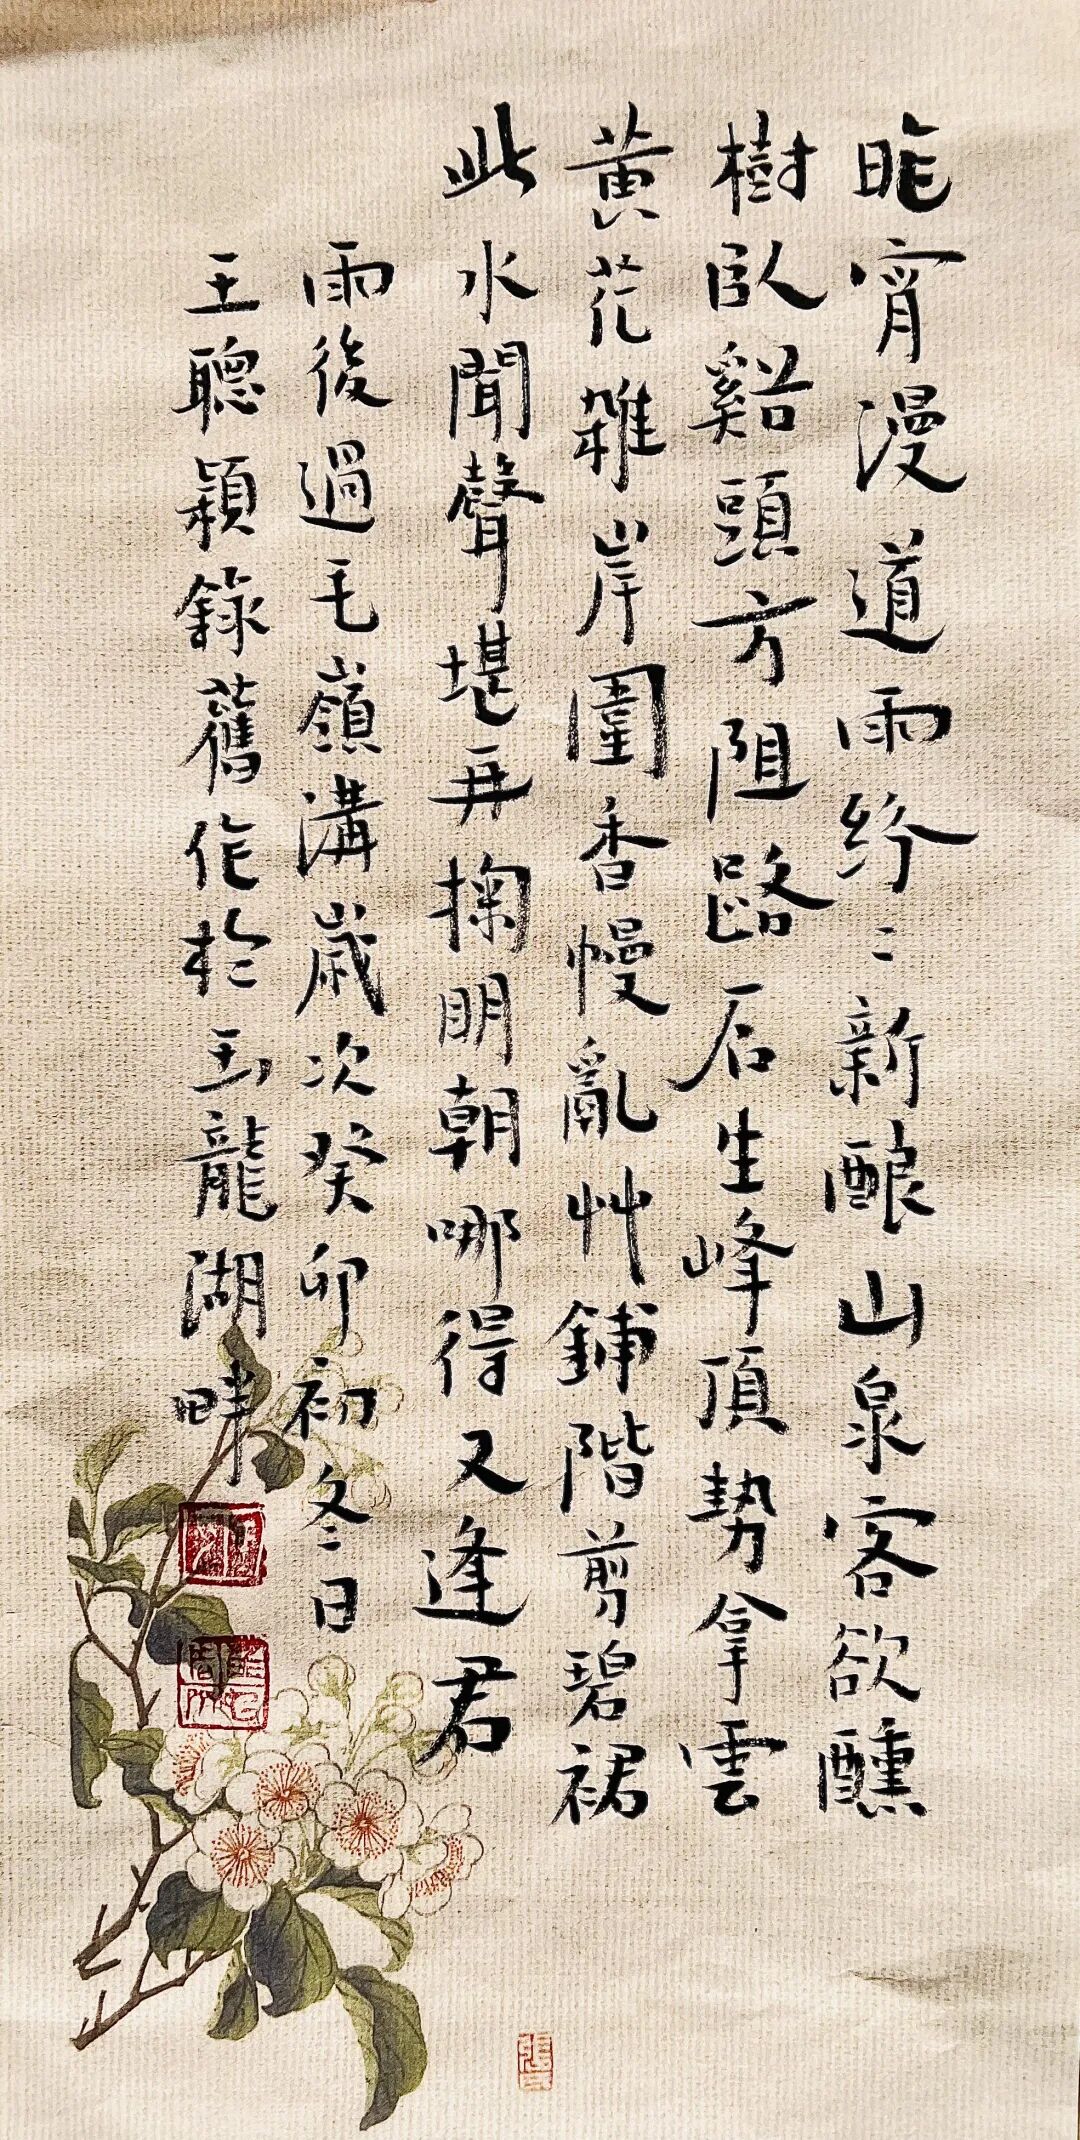 昨宵漫道雨紛〻新酿山泉客欲醺
樹臥谿頭方阻路石生峰頂勢拿雲
黄花雜岸圍香幔亂艸鋪階剪碧裙
此水聞聲堪再掬明朝哪得又逢君
雨後過毛嶺溝歲次癸卯初冬日
王聰穎錄舊作於玉龍湖畔